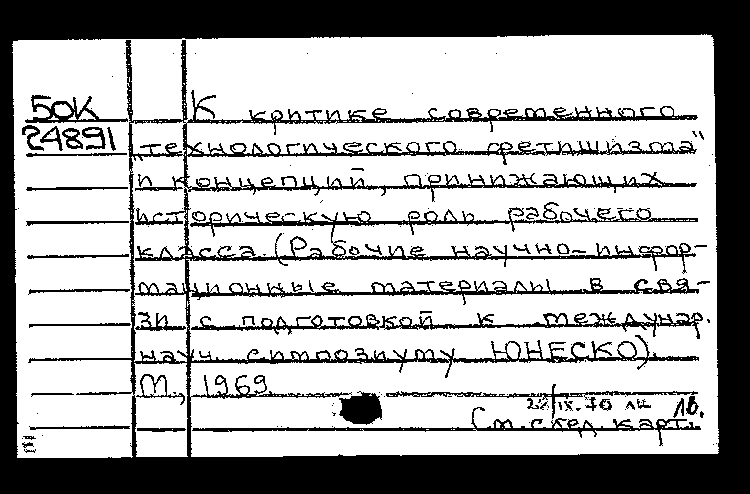 БОК К критике современного
24891 „технологического фетишизма"
и концепций, принижающих
историческую роль рабочего
класса. (Рабочие научно-инфор-
мационные материалы в свя-
зи с подготовкой к междунар.
науч. симпозиуму ЮНЕСКО).
М., 1969
22/IX.70 лк 1в.
См. след. карт.